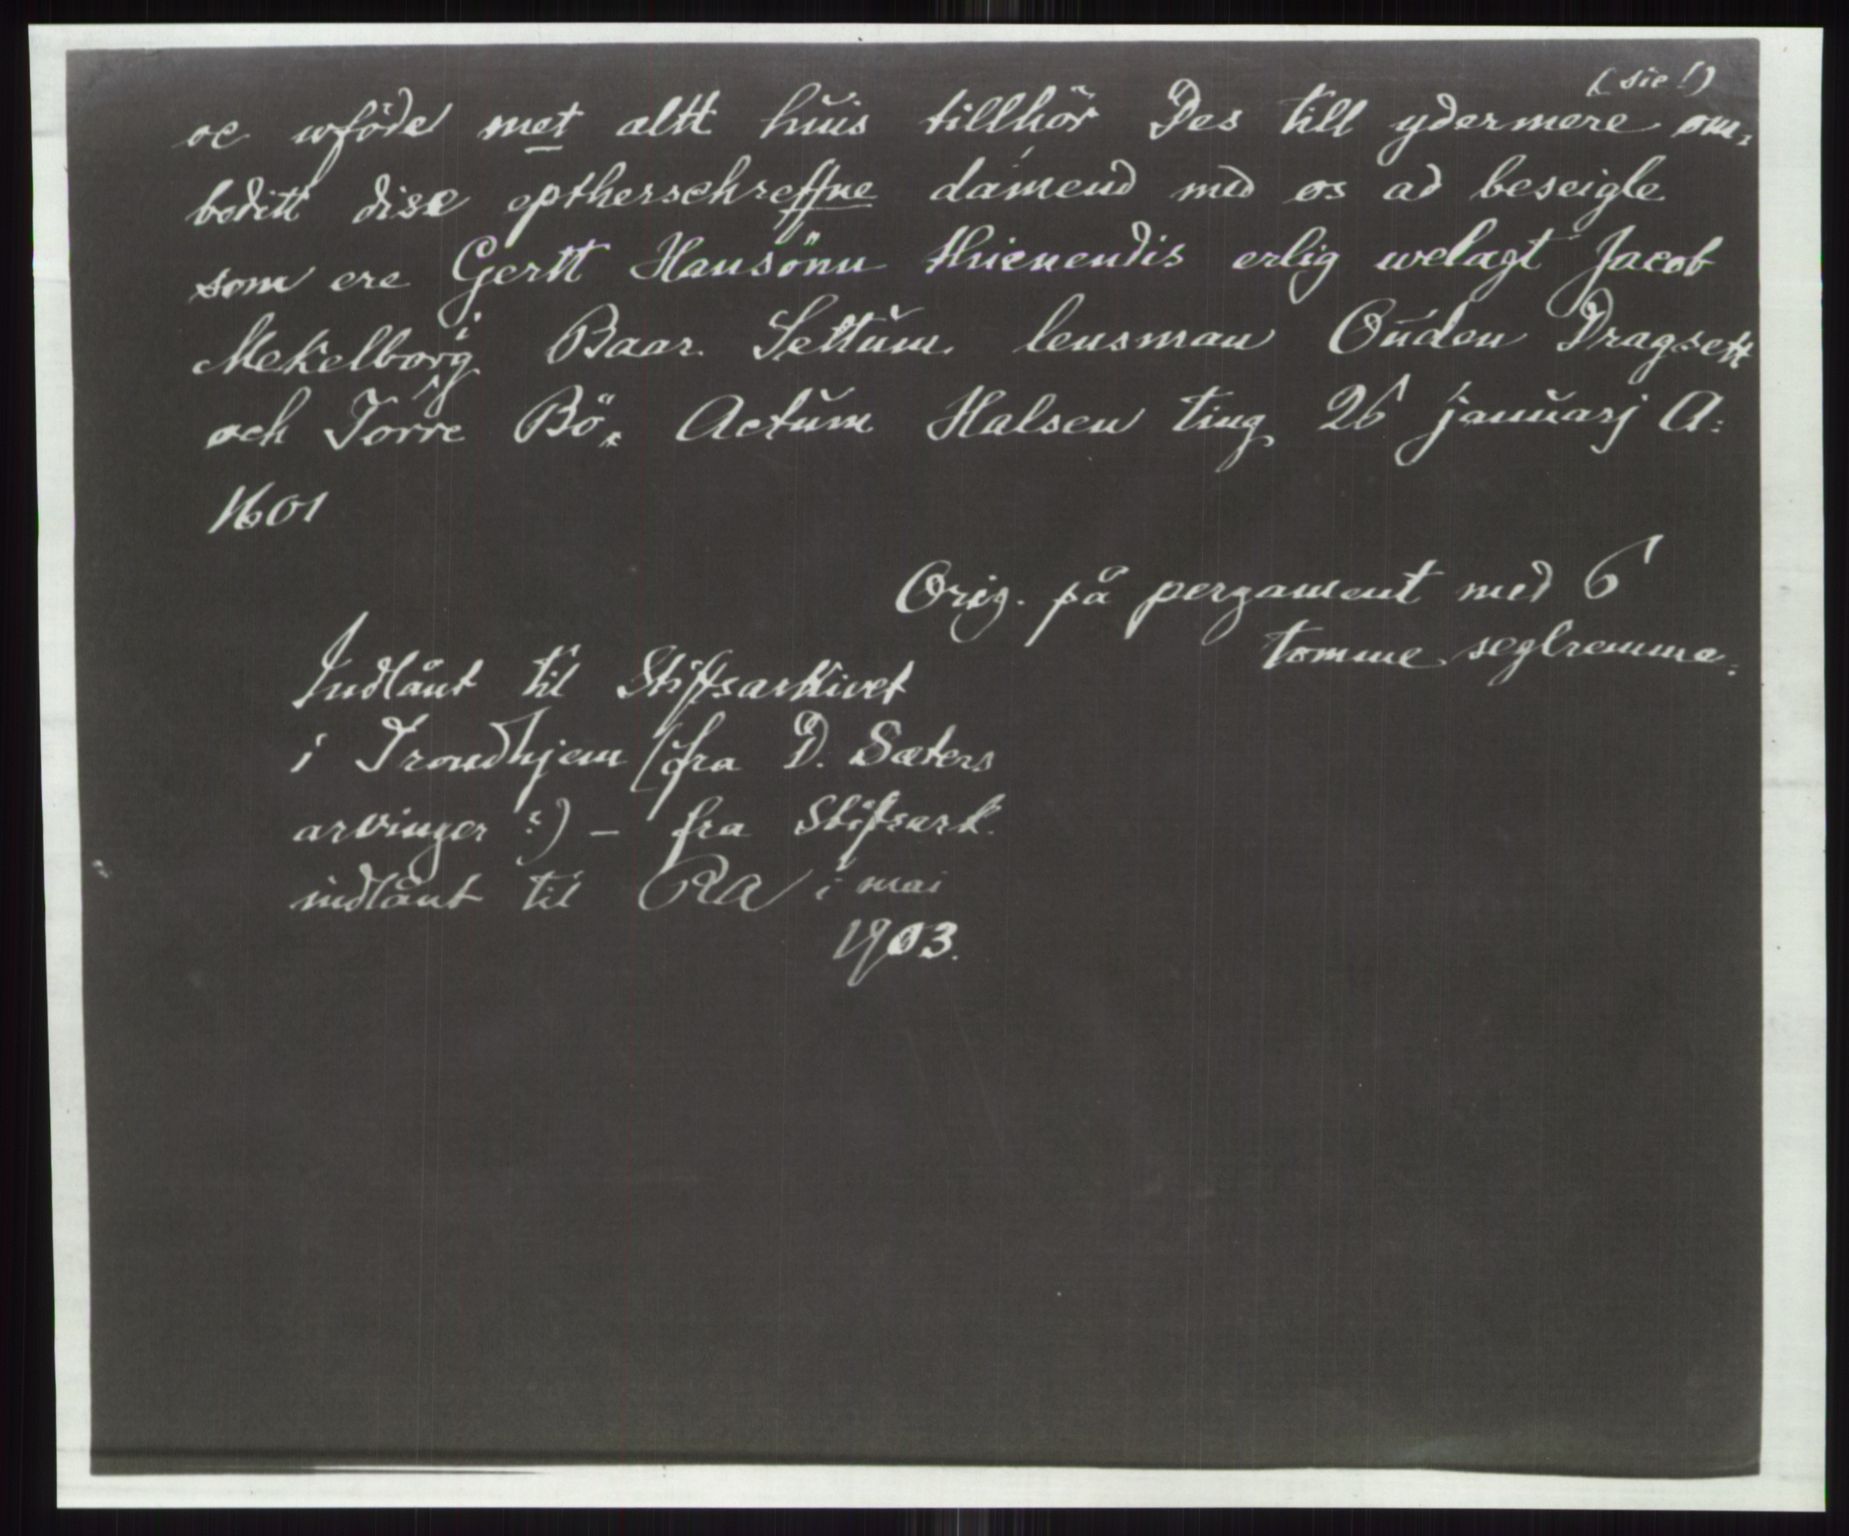 (sic!)
oc wföde met altt huis tillhör Des till ydermere om,
beditt dise eptherschreffne dåmend med os ad beseigle
som ere Gertt Hansönn thienendis erlig welagt Jacob
Mekelborig Baar Settum lensman Ouden Dragsett
och Torre Bö. Actum Halsen ting 26 januarj A:
1601
Orig. på pergament med 6
tomme seglremme.
Indlånt til Stiftsarkivet
i Trondhjem (fra D. Sæters
arvinger?) – fra Stiftsark.
indlånt til RA i mai
1903.